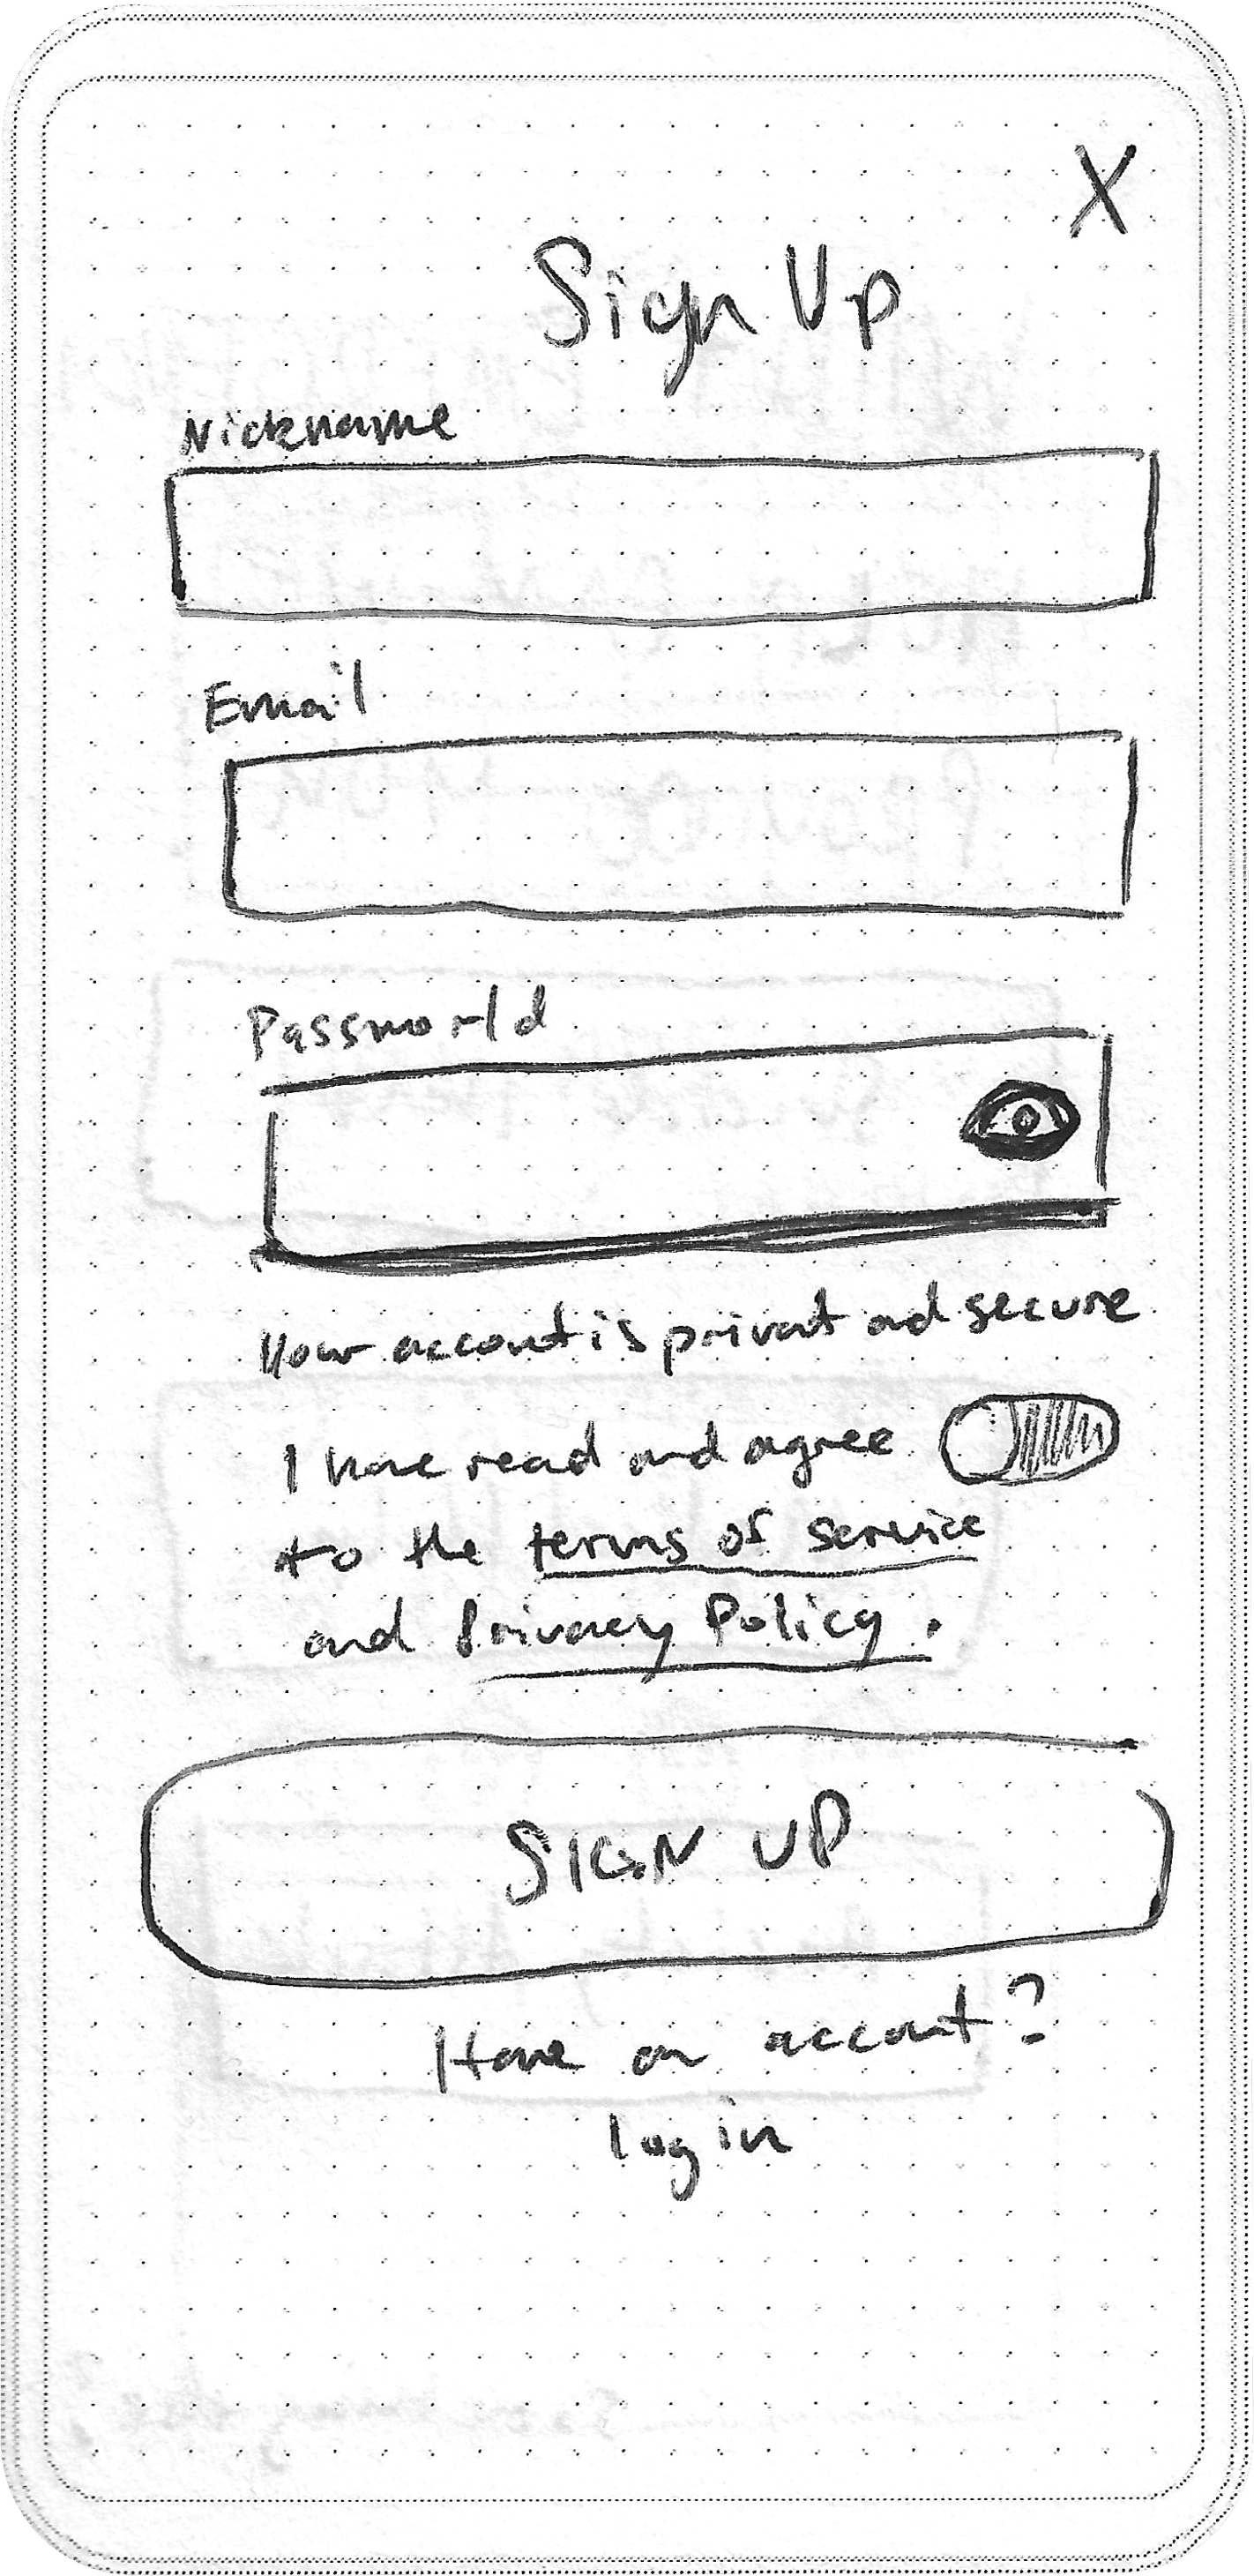 X
Sign Up
Nickname
Email
Password
Your account is privat and secure
I have read and agree
to the terms of service
and Privacy Policy.
SIGN UP
Have an account?
log in